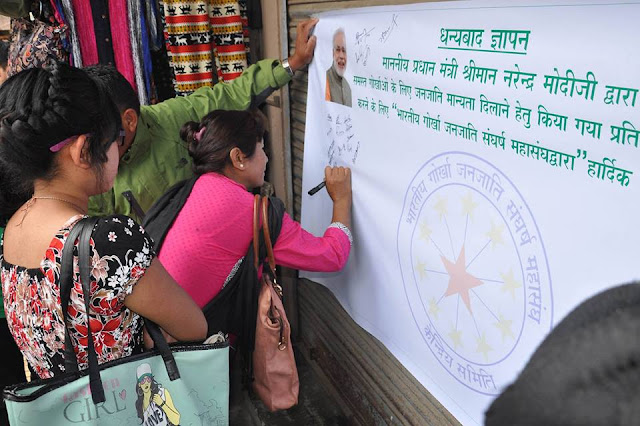 धन्यबाद ज्ञापन
माननीय प्रधान मंत्री श्रीमान नरेन्द्र मोदीजी द्वारा
समस्त गोर्खाओं के लिए जनजाति मान्यता दिलाने हेतु किया गया प्रति
करने के लिए "भारतीय गोर्खा जनजाति संघर्ष महासंघद्वारा" हार्दिक
भारतीय गोर्खा जनजाति संघर्ष महासंघ
केन्द्रिय समिति
GIRL